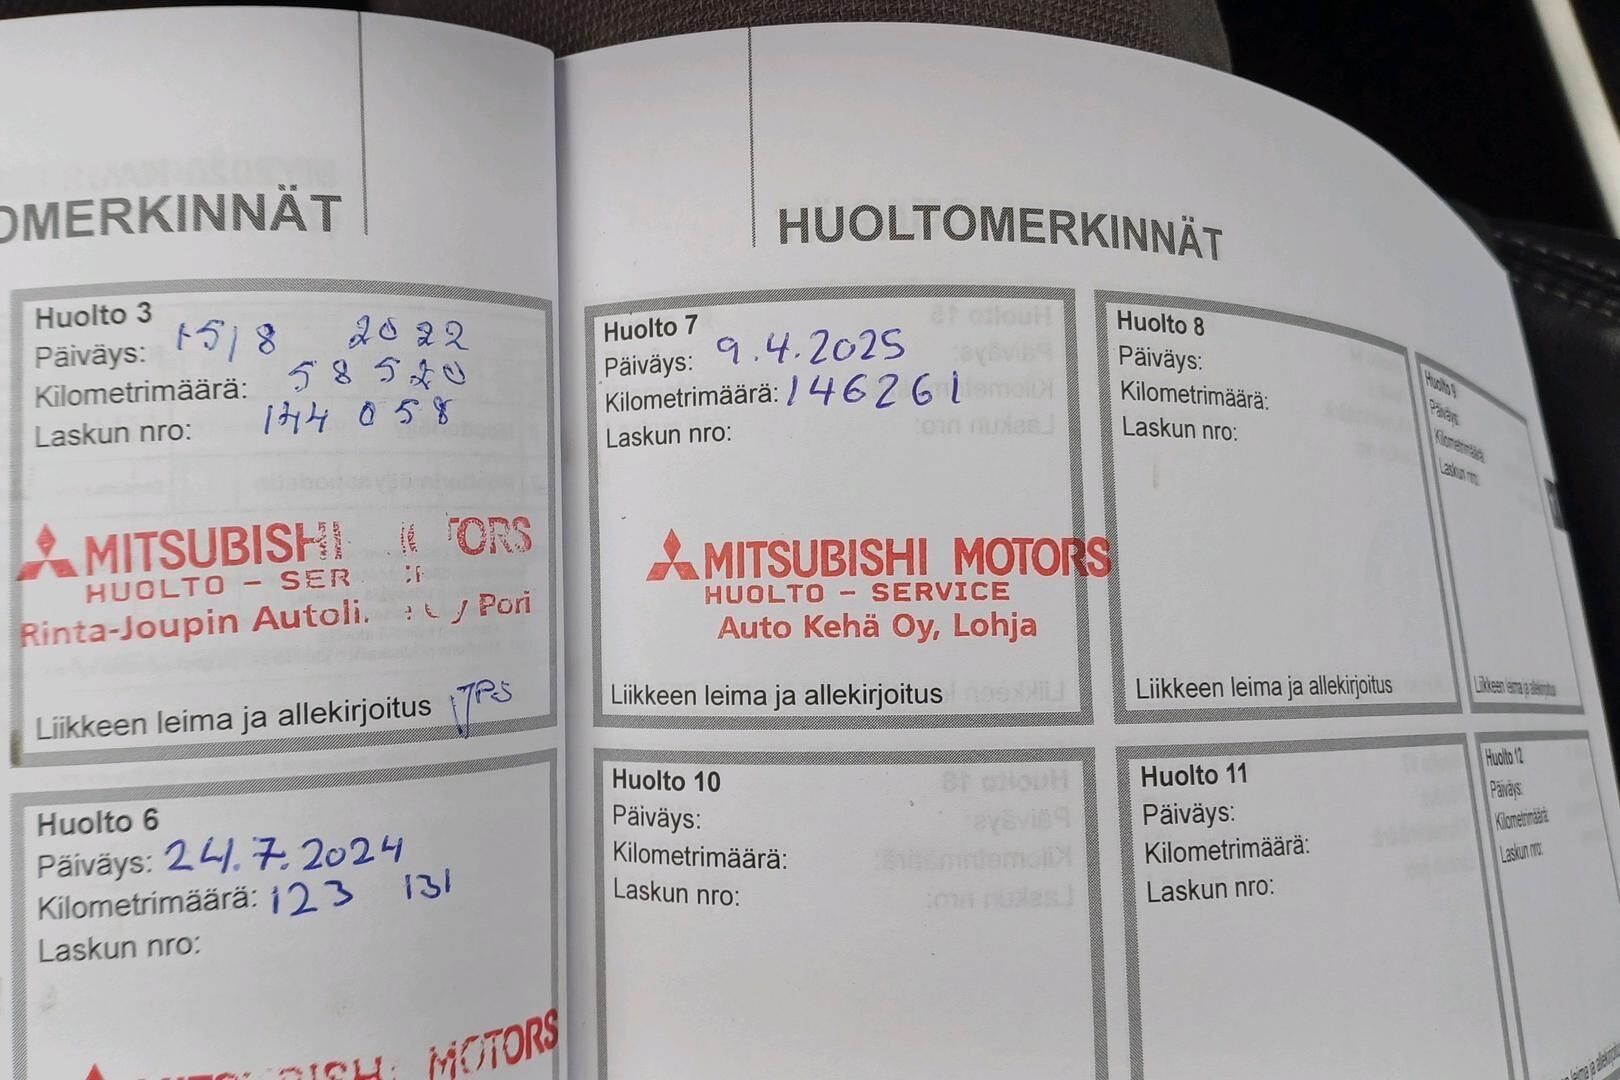 OMERKINNÄT
Huolto 3
Päiväys: 15/8 2022
Kilometrimäärä: 58520
Laskun nro: 144 058
MITSUBISHI TORS
HUOLTO - SER
Rinta-Joupin Autoli Pori
Liikkeen leima ja allekirjoitus
Huolto 6
Päiväys: 24.7.2024
Kilometrimäärä: 123 131
Laskun nro:
MOTORS
HUOLTOMERKINNÄT
Huolto 7
Päiväys: 9.4.2025
Kilometrimäärä: 146261
Laskun nro:
MITSUBISHI MOTORS
HUOLTO - SERVICE
Auto Kehä Oy, Lohja
Liikkeen leima ja allekirjoitus
Huolto 8
Päiväys:
Kilometrimäärä:
Laskun nro:
Liikkeen leima ja allekirjoitus
Huolto 9
Päiväys:
Kilometrimäärä:
Laskun nro:
Liikkeen leima ja allekirjoitus
Huolto 10
Päiväys:
Kilometrimäärä:
Laskun nro:
Huolto 11
Päiväys:
Kilometrimäärä:
Laskun nro:
Huolto 12
Päiväys:
Kilometrimäärä:
Laskun nro:
leima ja allekirjoitus